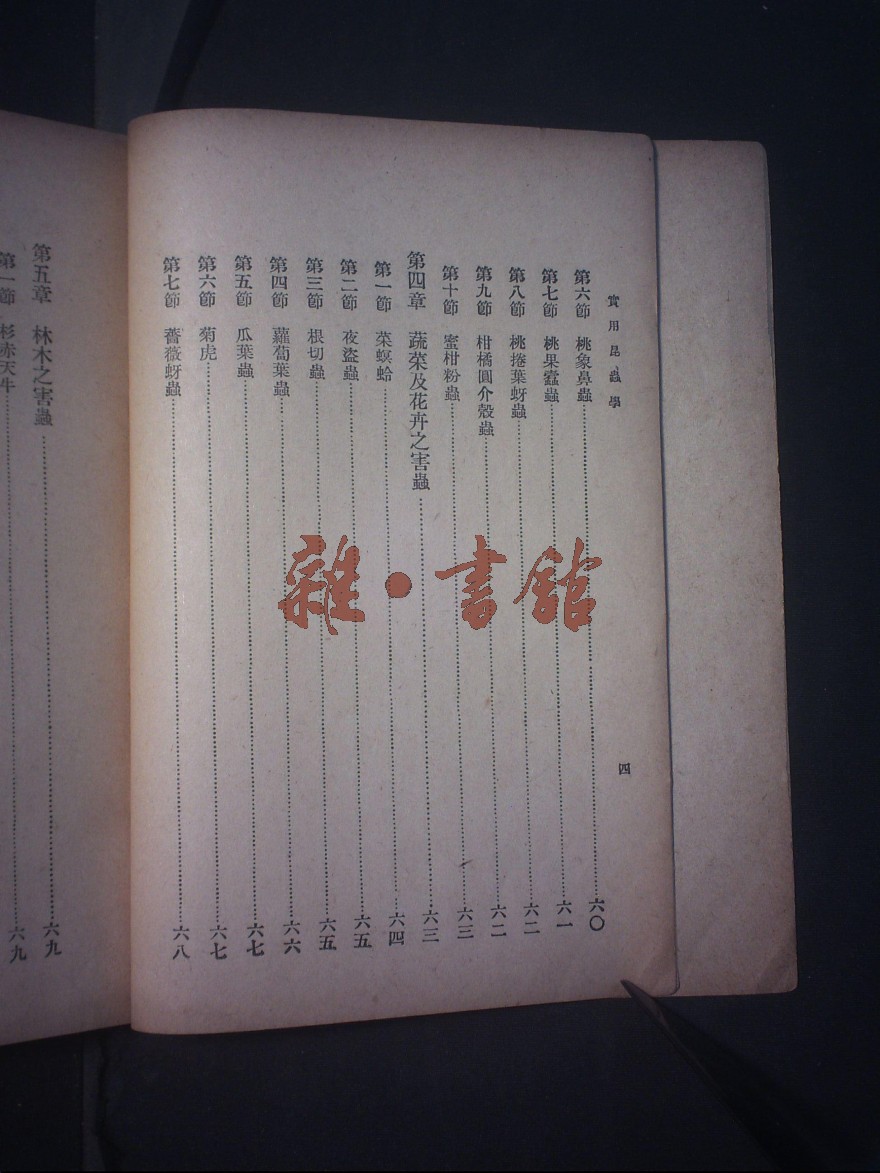 實用昆蟲學
四
第六節 桃象鼻蟲 六〇
第七節 桃果蠹蟲 六一
第八節 桃捲葉蚜蟲 六二
第九節 柑橘圓介殼蟲 六二
第十節 蜜柑粉蟲 六三
第四章 蔬菜及花卉之害蟲 六三
第一節 菜螟蛉 六四
第二節 夜盜蟲 六五
第三節 根切蟲 六五
第四節 蘿蔔葉蟲 六六
第五節 瓜葉蟲 六七
第六節 菊虎 六七
第七節 薔薇蚜蟲 六八
第五章 林木之害蟲 六九
第一節 杉赤天牛 六九
雜·書館